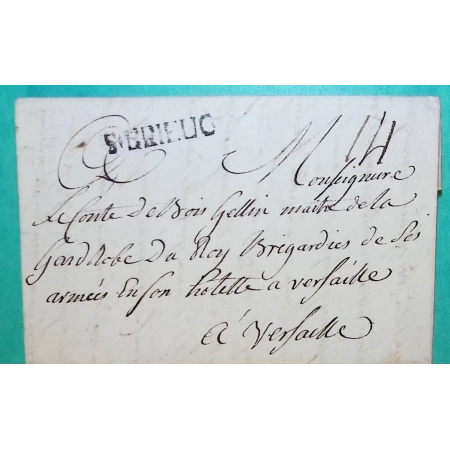 S.BRIEUC
14
Monseigneure
Le Conte De Bois Gellin maitre de la
GardRobe Du Roy Brigardies de Ses
armées En son hotelle a versaille
a versaille